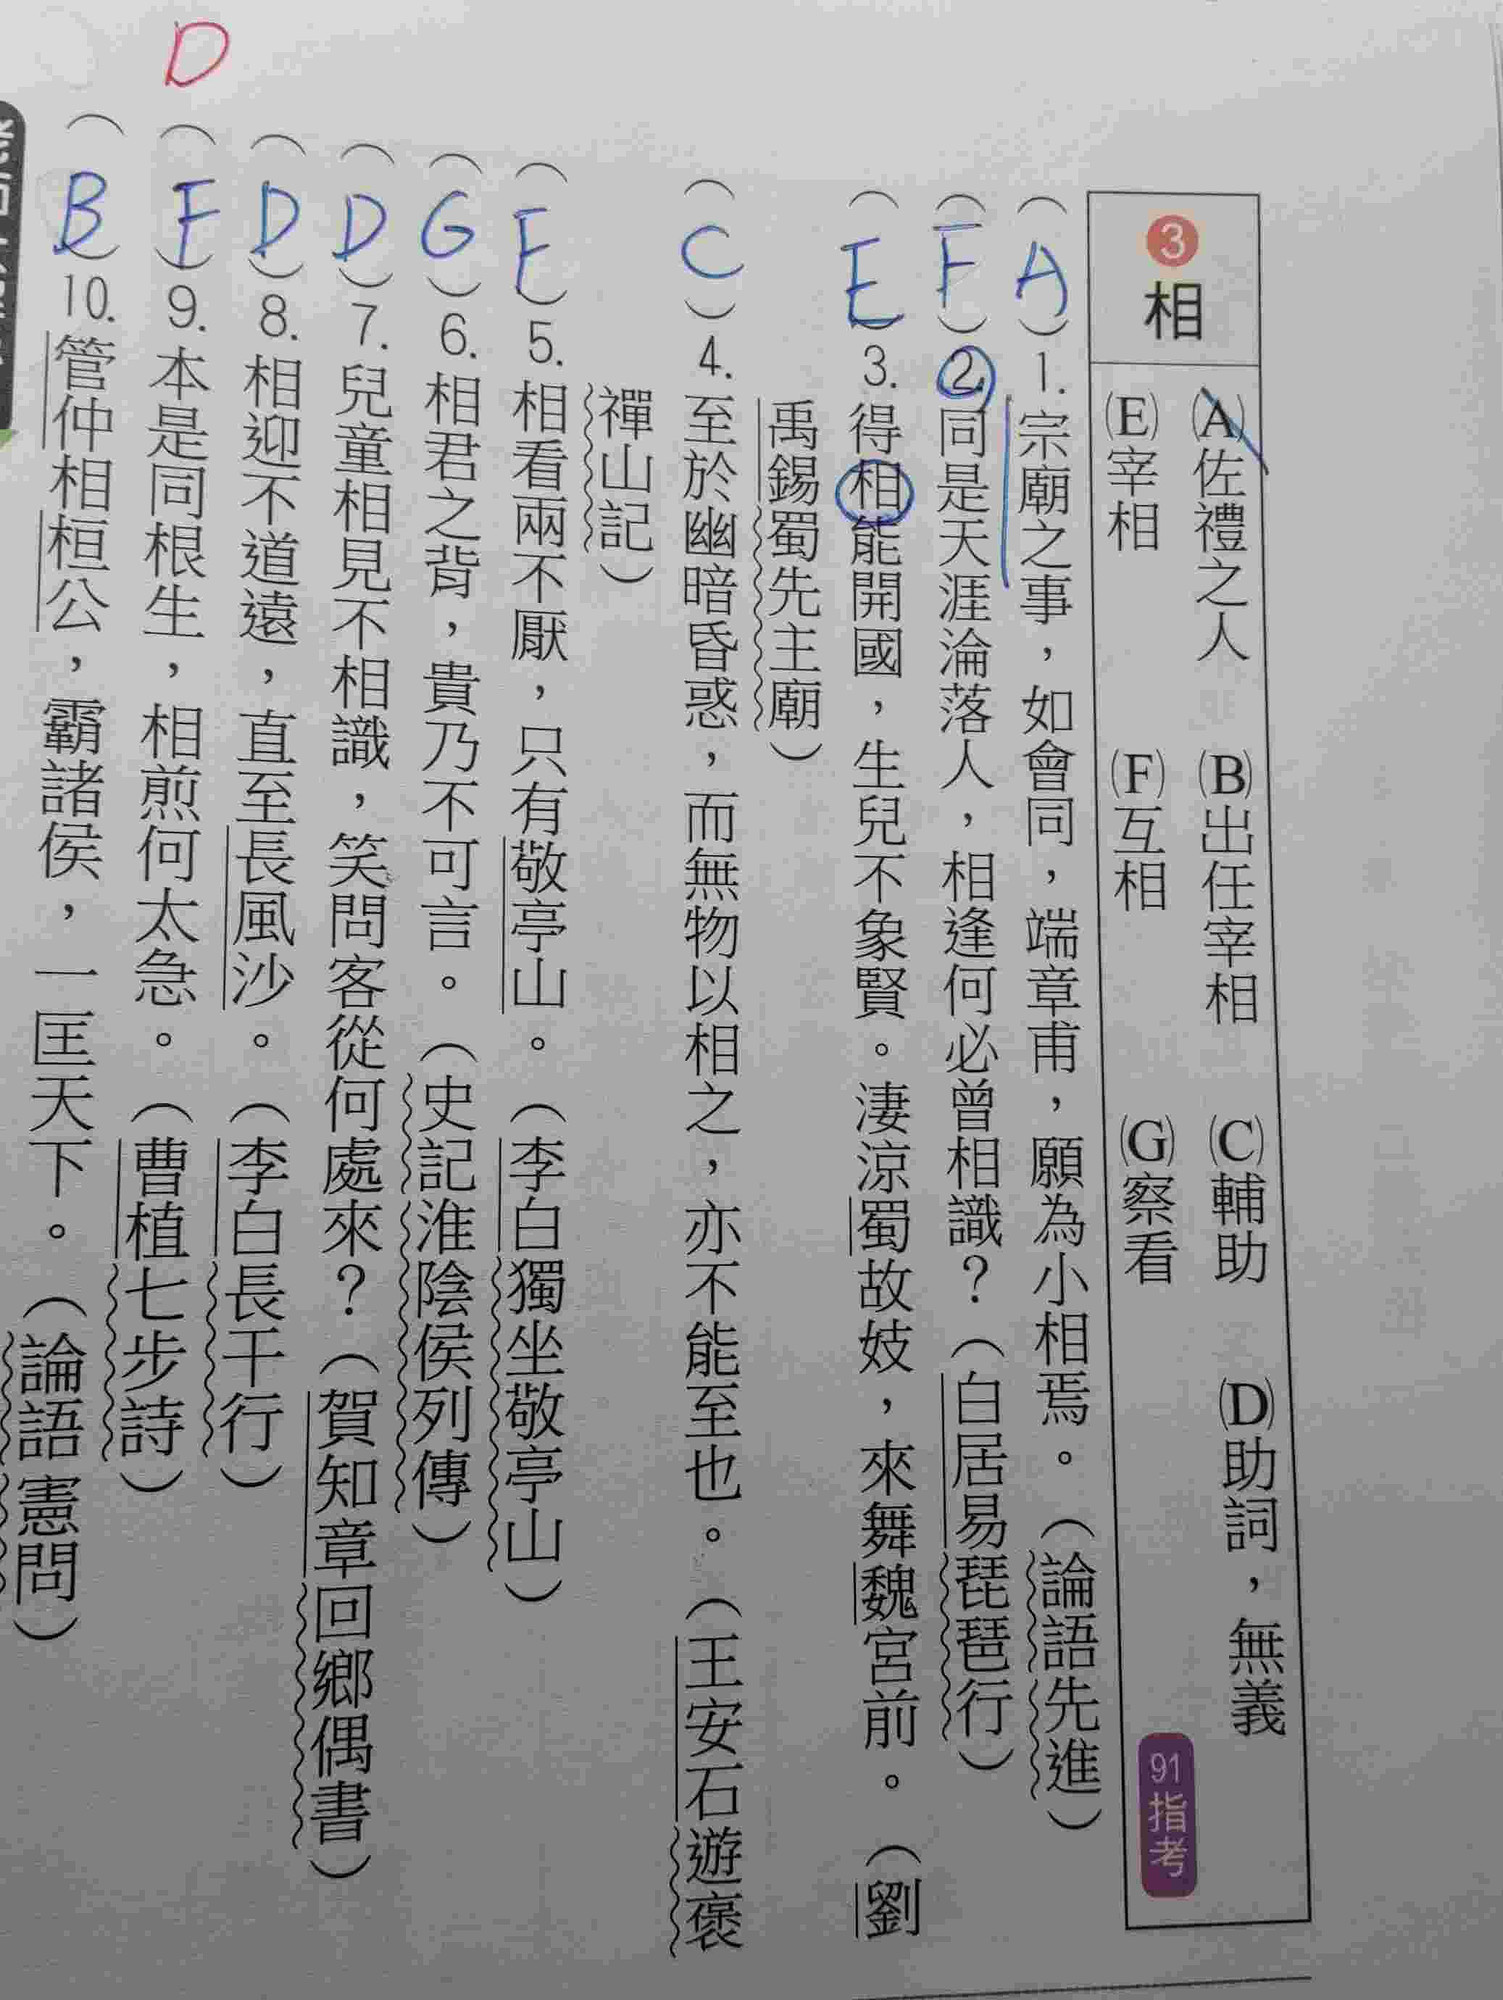 3 相
(A)佐禮之人 (B)出任宰相 (C)輔助 (D)助詞，無義
(E)宰相 (F)互相 (G)察看 91指考
(A)1.宗廟之事，如會同，端章甫，願為小相焉。（論語先進）
(F)2.同是天涯淪落人，相逢何必曾相識？（白居易琵琶行）
(E)3.得相能開國，生兒不象賢。淒涼蜀故妓，來舞魏宮前。（劉
禹錫蜀先主廟）
(C)4.至於幽暗昏惑，而無物以相之，亦不能至也。（王安石遊褒
禪山記）
(F)5.相看兩不厭，只有敬亭山。（李白獨坐敬亭山）
(G)6.相君之背，貴乃不可言。（史記淮陰侯列傳）
(D)7.兒童相見不相識，笑問客從何處來？（賀知章回鄉偶書）
(D)8.相迎不道遠，直至長風沙。（李白長干行）
D
(F)9.本是同根生，相煎何太急。（曹植七步詩）
(B)10.管仲相桓公，霸諸侯，一匡天下。（論語憲問）